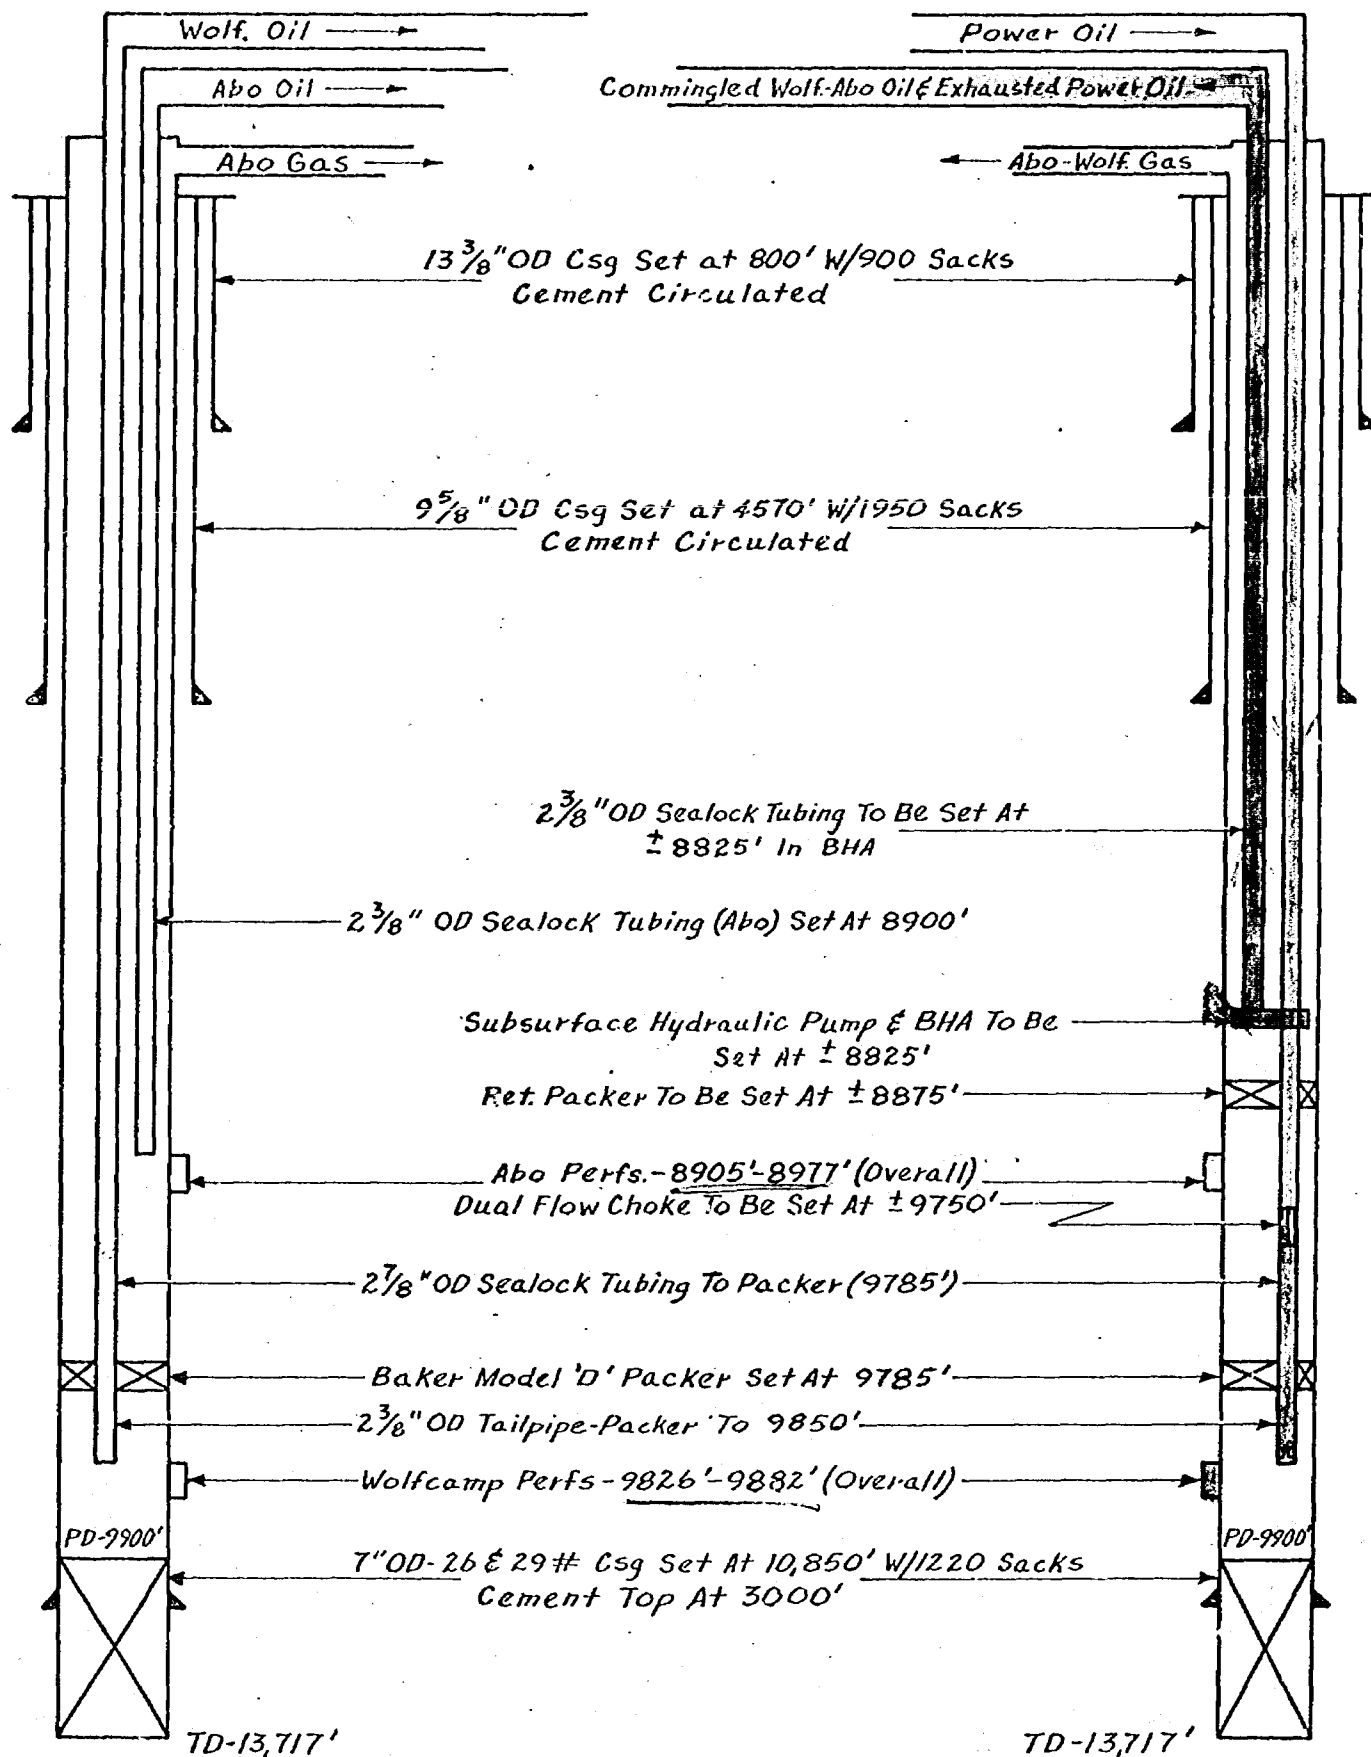 Wolf. Oil
Power Oil
Abo Oil
Commingled Wolf-Abo Oil & Exhausted Power Oil
Abo Gas
Abo-Wolf. Gas
13 3/8" OD Csg Set at 800' W/900 Sacks
Cement Circulated
9 5/8" OD Csg Set at 4570' W/1950 Sacks
Cement Circulated
2 3/8" OD Sealock Tubing To Be Set At
± 8825' In BHA
2 3/8" OD Sealock Tubing (Abo) Set At 8900'
Subsurface Hydraulic Pump & BHA To Be
Set At ± 8825'
Ret. Packer To Be Set At ± 8875'
Abo Perfs.-8905'-8977' (Overall)
Dual Flow Choke To Be Set At ± 9750'
2 7/8" OD Sealock Tubing To Packer (9785')
Baker Model 'D' Packer Set At 9785'
2 3/8" OD Tailpipe-Packer To 9850'
Wolfcamp Perfs-9826'-9882' (Overall)
PD-9900'
PD-9900'
7" OD-26 & 29# Csg Set At 10,850' W/1220 Sacks
Cement Top At 3000'
TD-13,717'
TD-13,717'